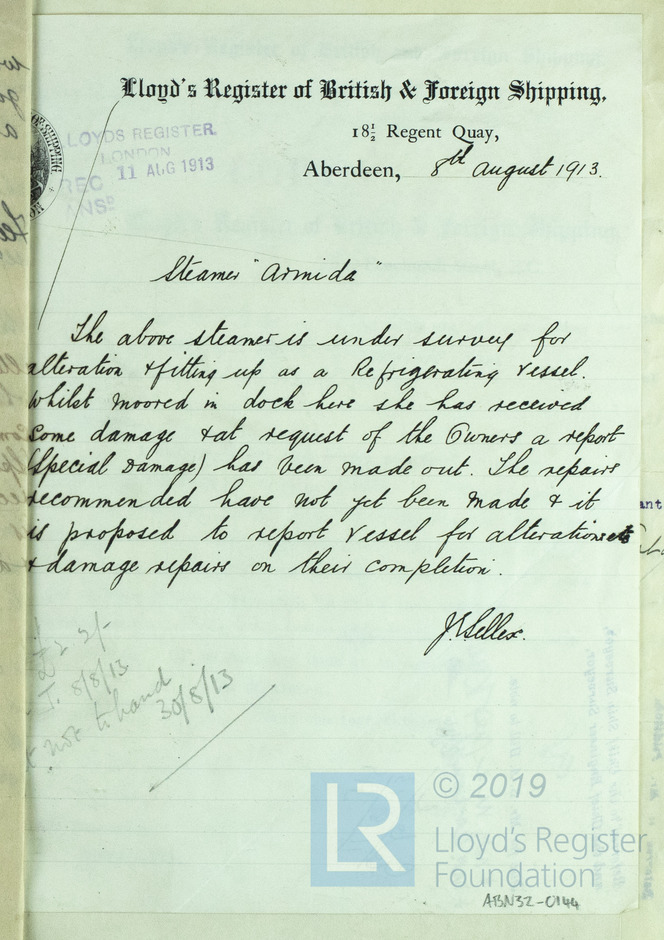 Lloyd's Register of British & Foreign Shipping,
18½ Regent Quay,
Aberdeen, 8th August 1913.
LLOYDS REGISTER
LONDON
REC 11 AUG 1913
ANSD
Steamer "Armida"
The above steamer is under survey for
alteration & fitting up as a Refrigerating vessel.
Whilst moored in dock here she has received
some damage & at request of the Owners a report
(Special Damage) has been made out. The repairs
recommended have not yet been made & it
is proposed to report vessel for alterations etc
& damage repairs on their completion.
J.E. Sellex.
8/8/13
not to hand
30/8/13
LR
© 2019
Lloyd's Register
Foundation
ABN32-0144